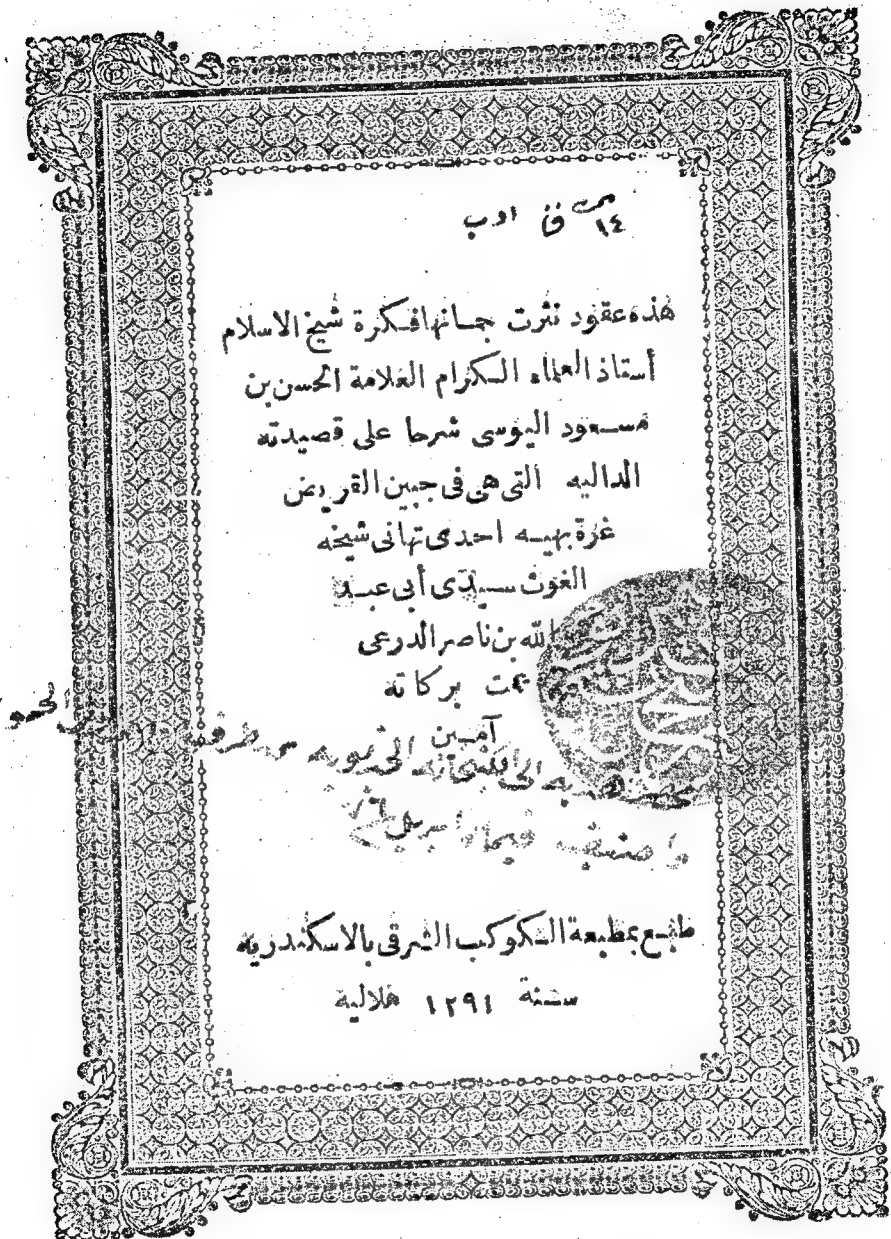 ١٤ فن ادب
هذه عقود نثرت جمانها فكرة شيخ الاسلام
أستاذ العلماء الكرام العلامة الحسن بن
مسعود اليوسى شرحا على قصيدته
الداليه التى هى فى جبين القريض
غرة بهيه احدى تهانى شيخه
الغوث سيدى أبى عبد
الله بن ناصر الدرعى
عمت بركاته
آمين
طبع بمطبعة الكوكب الشرقى بالاسكندريه
سنة ١٢٩١ هلالية